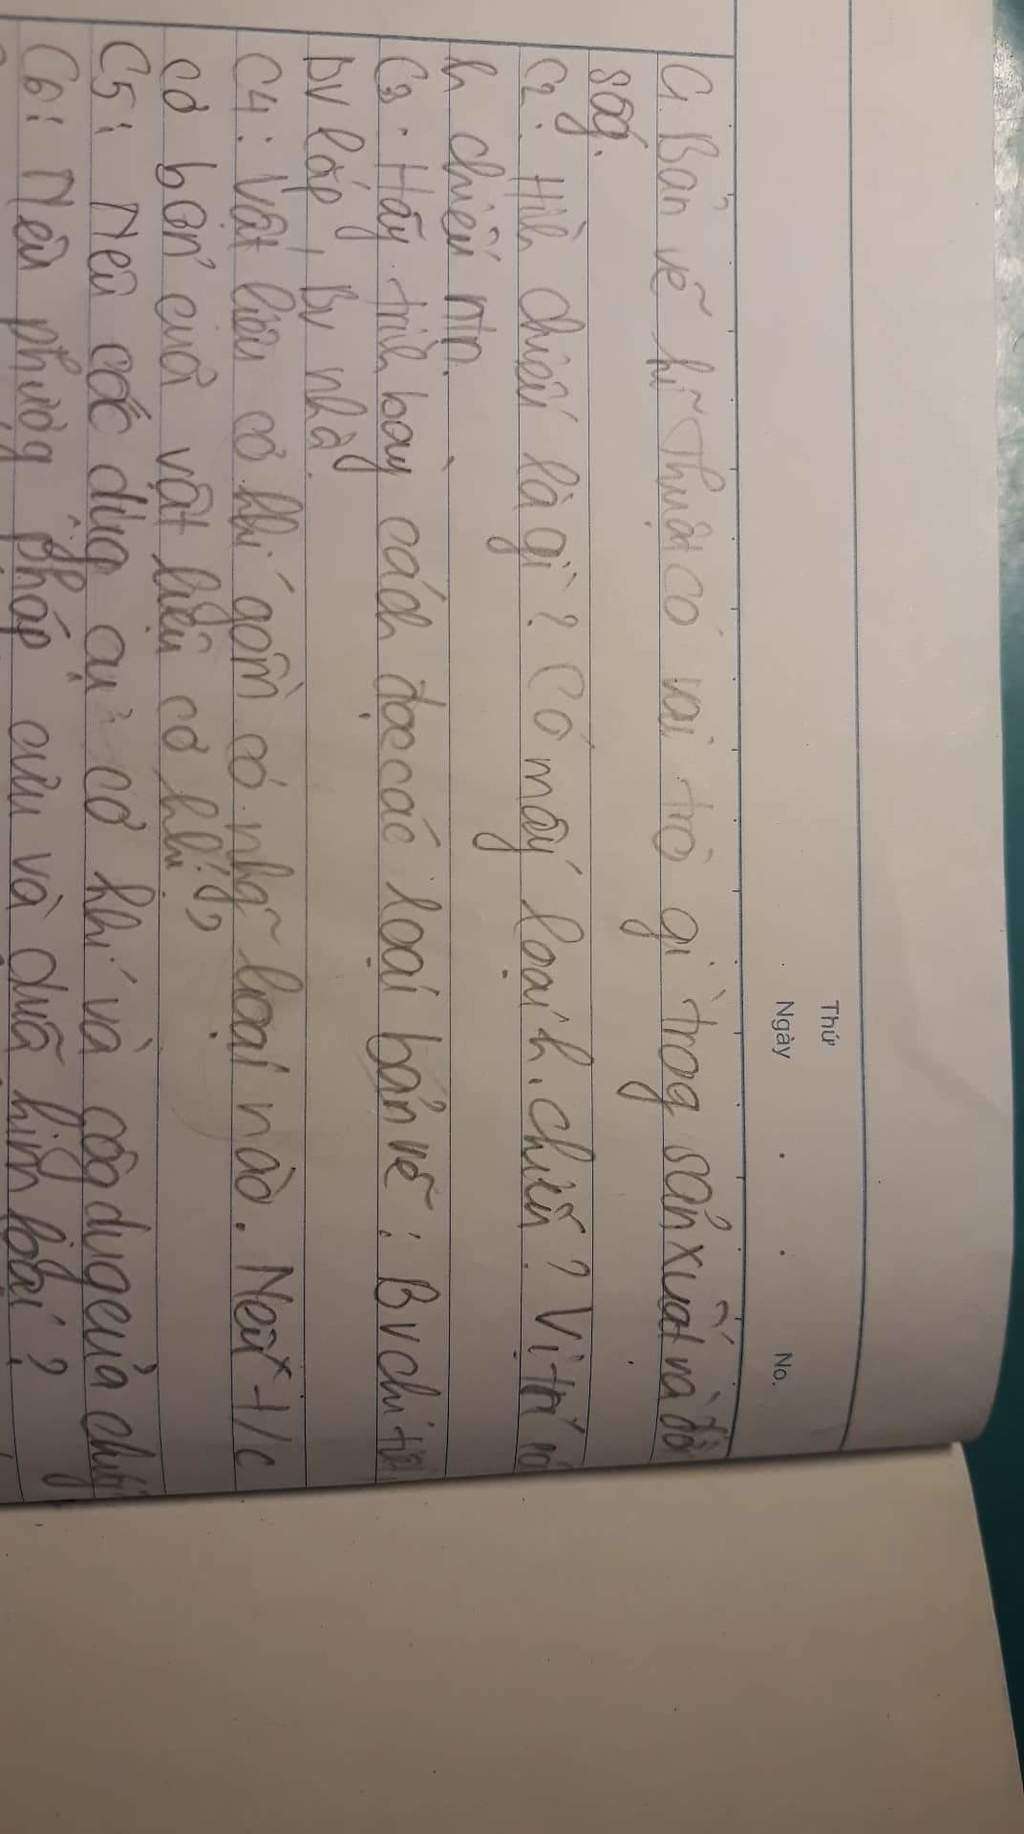 Thứ
Ngày . . No.
C1. Bản vẽ kĩ thuật có vai trò gì trog sản xuất và đời
sôg.
C2. Hìh chiếu là gì? Có mấy loại h. chiếu? Vị trí
h chiếu ntn.
C3. Hãy trìh bày cách đọc các loại bản vẽ: Bv chi tiết
BV lắp, Bv nhà.
C4: Vật liệu cơ khí gồm có nhg~ loại nào. Nêu t/c
cơ bản của vật liệu cơ khí?
C5: Nêu các dụg cụ cơ khí và côg dụg của chúg
C6: Nêu phươg pháp cưa và dũa kim loại?